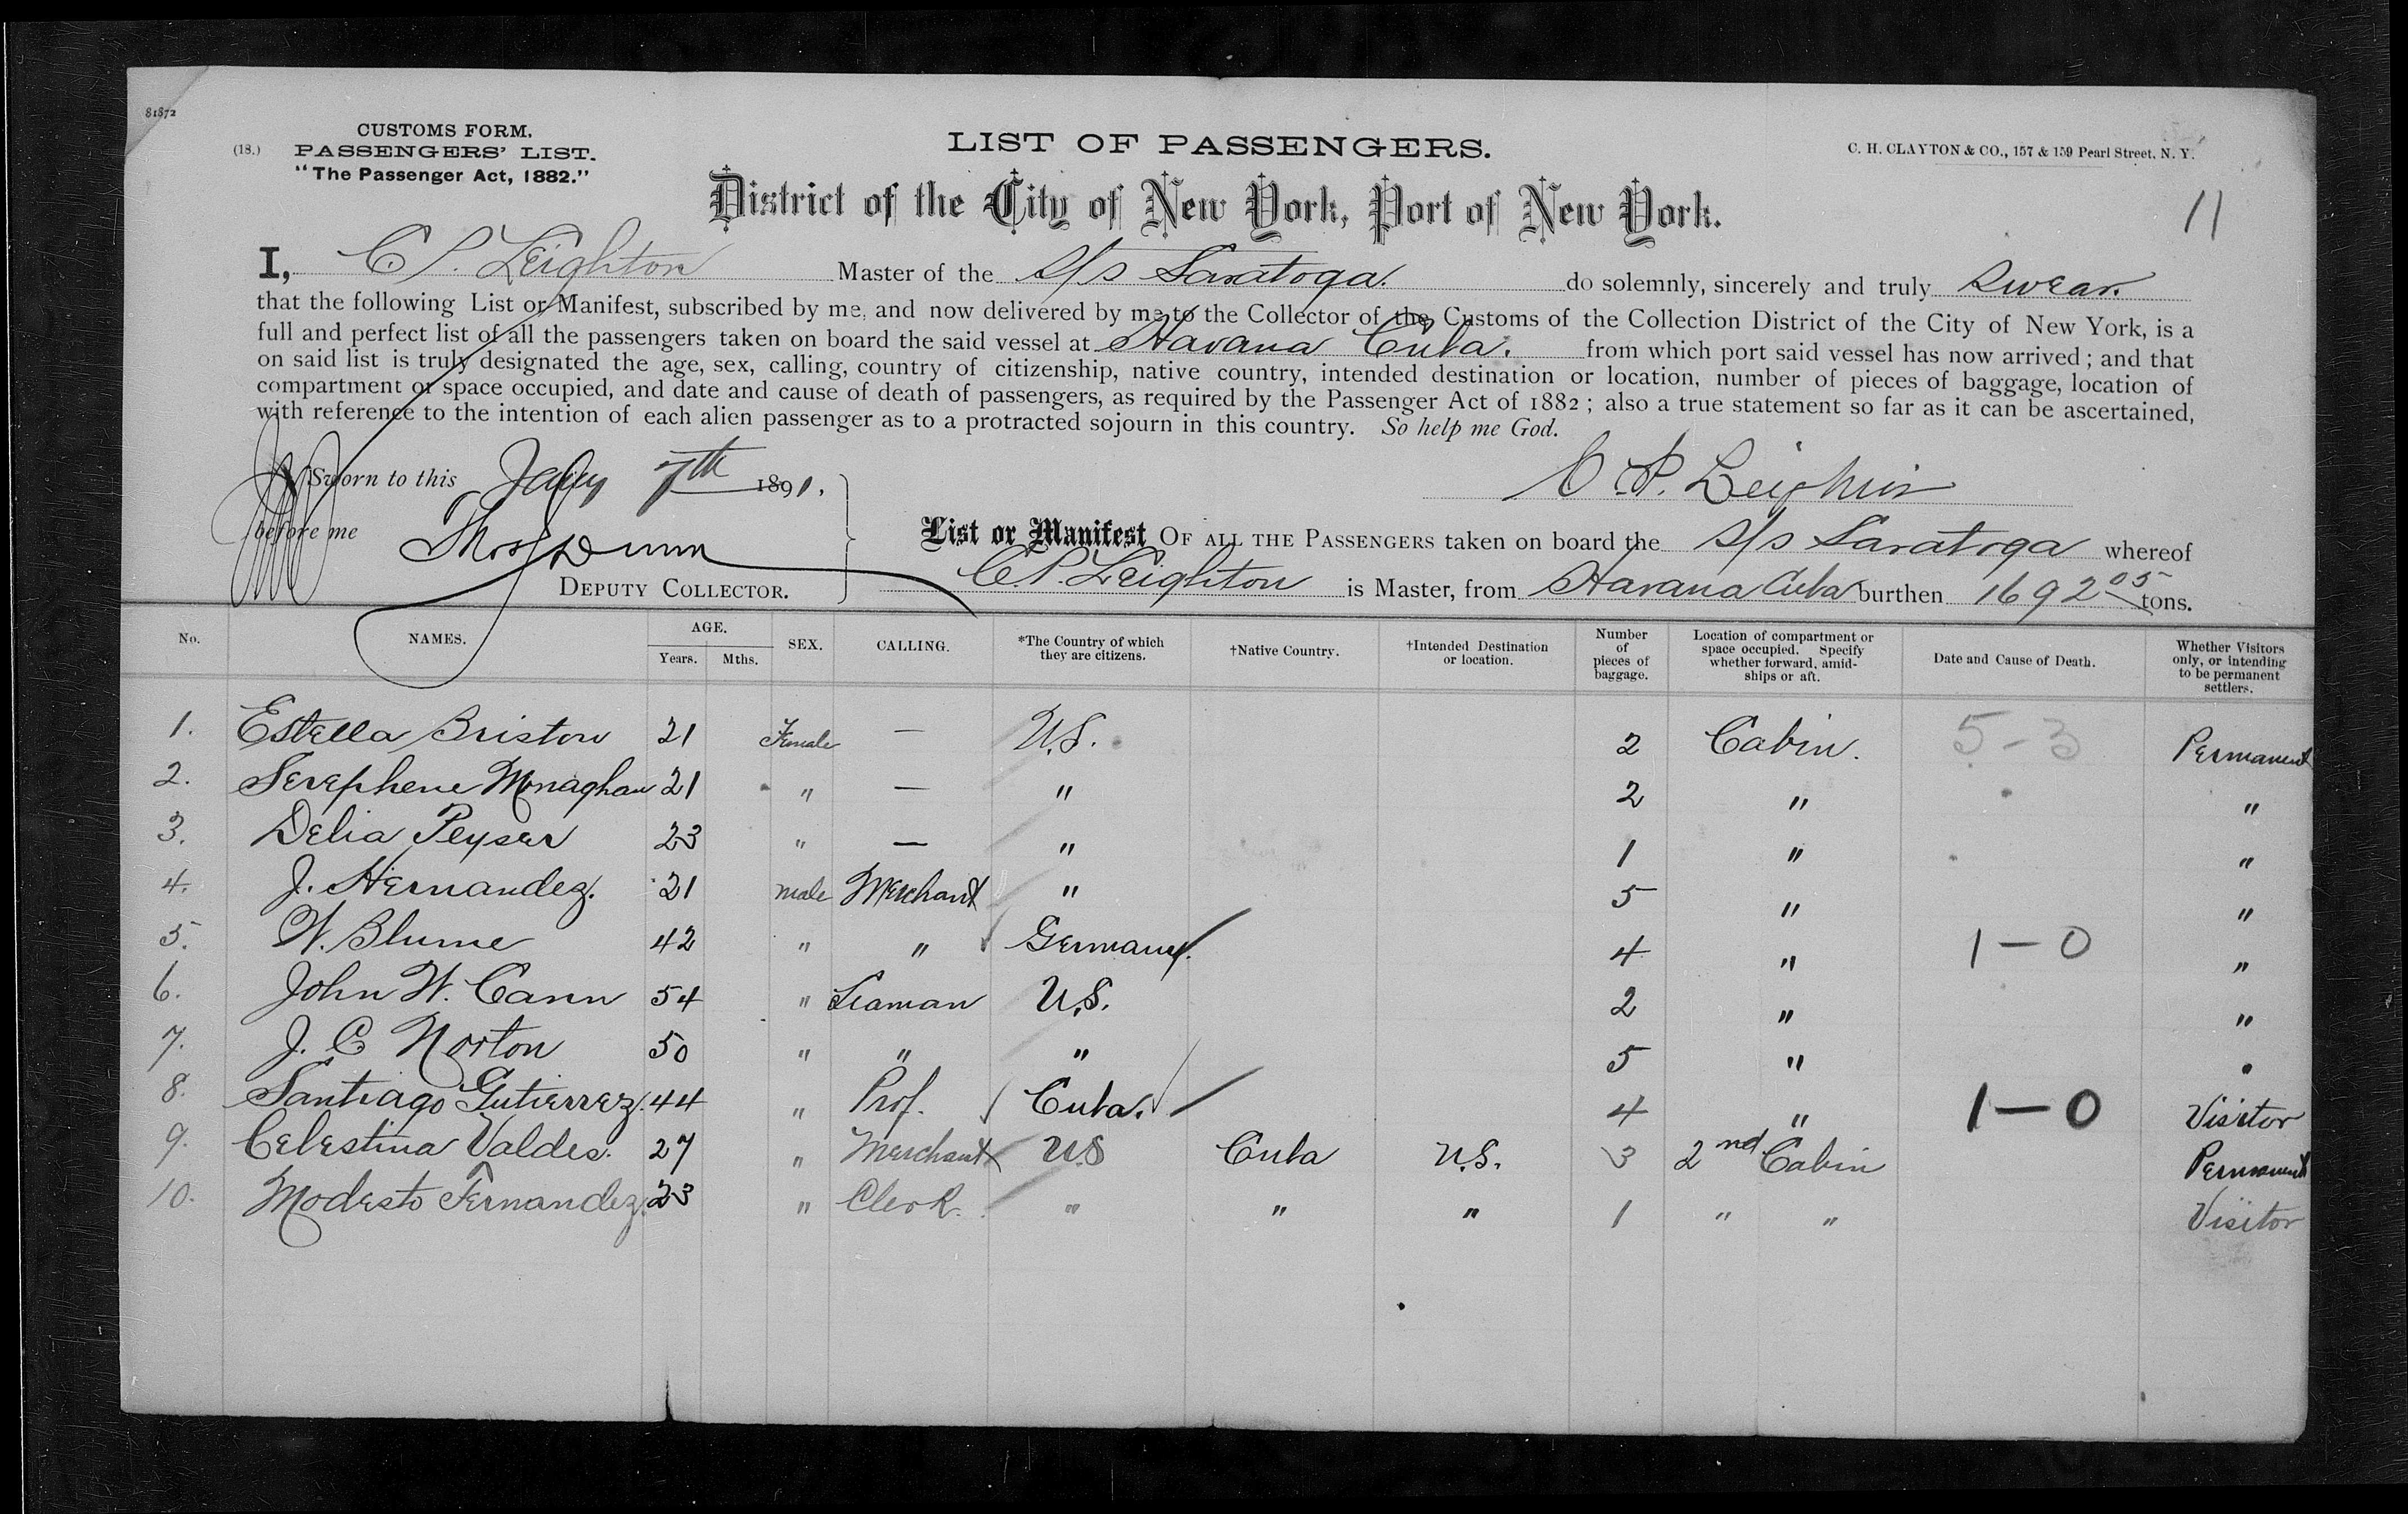 81872
CUSTOMS FORM.
(18.) PASSENGERS' LIST.
"The Passenger Act, 1882."
LIST OF PASSENGERS.
C. H. CLAYTON & CO., 157 & 159 Pearl Street, N. Y.
District of the City of New York, Port of New York.
11
I, C. P. Leighton Master of the S/S Saratoga. do solemnly, sincerely and truly swear.
that the following List or Manifest, subscribed by me, and now delivered by me to the Collector of the Customs of the Collection District of the City of New York, is a
full and perfect list of all the passengers taken on board the said vessel at Havana Cuba. from which port said vessel has now arrived; and that
on said list is truly designated the age, sex, calling, country of citizenship, native country, intended destination or location, number of pieces of baggage, location of
compartment or space occupied, and date and cause of death of passengers, as required by the Passenger Act of 1882; also a true statement so far as it can be ascertained,
with reference to the intention of each alien passenger as to a protracted sojourn in this country. So help me God.
Sworn to this Jany 7th 1891.
C. P. Leighton
before me Thos Dunn
DEPUTY COLLECTOR.
List or Manifest OF ALL THE PASSENGERS taken on board the S/S Saratoga whereof
C. P. Leighton is Master, from Havana Cuba burthen 1692 05 tons.
No. NAMES. AGE. Years. Mths. SEX. CALLING. *The Country of which they are citizens. †Native Country. †Intended Destination or location. Number of pieces of baggage. Location of compartment or space occupied. Specify whether forward, amidships or aft. Date and Cause of Death. Whether Visitors only, or intending to be permanent settlers.
1. Estella Bristow 21 Female — U.S. 2 Cabin. 5-3 Permanent
2. Serephene Monaghan 21 " — " 2 " "
3. Delia Peyser 23 " — " 1 " "
4. J. Hernandez. 21 male Merchant " 5 " "
5. W. Blume 42 " " Germany. 4 " 1-0 "
6. John W. Cann 54 " Seaman U.S. 2 " "
7. J. C Norton 50 " " " 5 "
8. Santiago Gutierrez. 44 " Prof. Cuba. 4 " 1-0 Visitor
9. Celestina Valdes. 27 " Merchant US Cuba U.S. 3 2nd Cabin Permanent
10. Modesto Fernandez. 23 " Clerk. " " " 1 " " Visitor